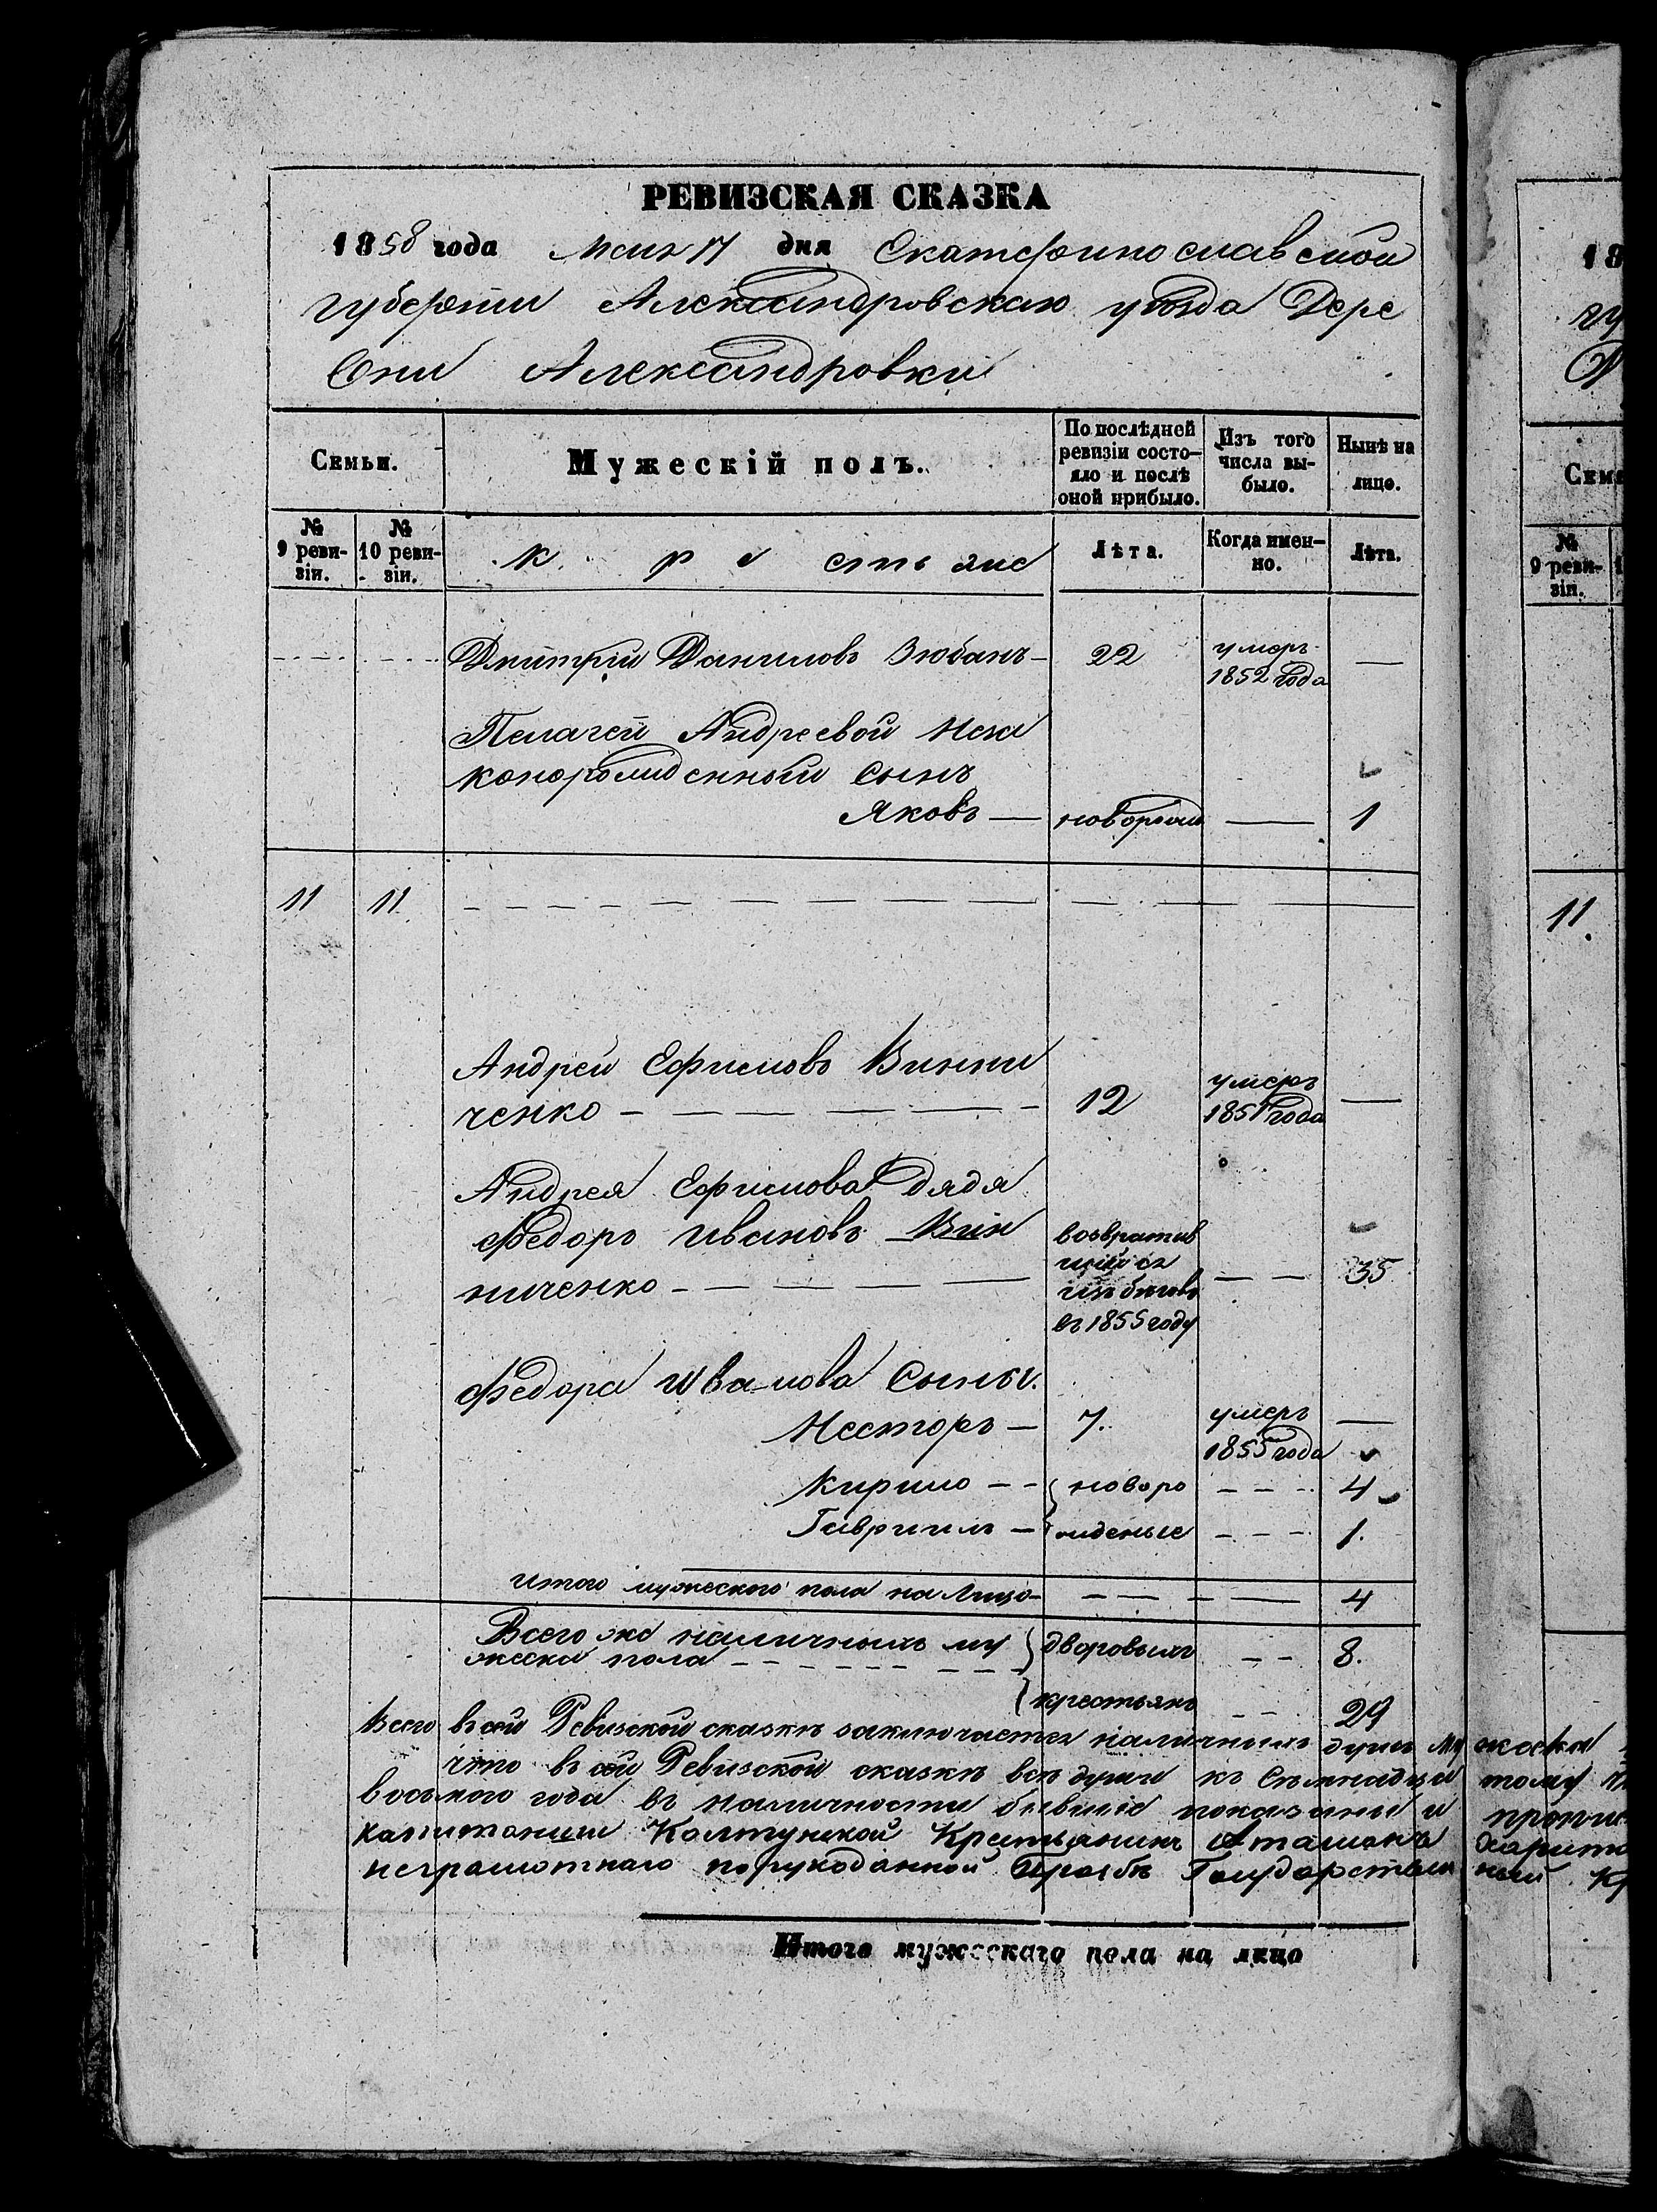 РЕВИЗСКАЯ СКАЗКА
1858 года Мая 17 дня Екатеринославской
губернии Александровскаго уѣзда Дере
вни Александровки
Семьи.
Мужескій полъ.
По послѣдней ревизіи состо-
яло и послѣ
оной прибыло.
Изъ того
числа вы-
было.
Нынѣ на
лицо.
№
9 реви-
зіи.
№
10 реви-
зіи.
К р е стьяне
Лѣта.
Когда имен-
но.
Лѣта.
Дмитрій Даниловъ Зюбанъ — 22 умеръ 1852 года —
Пелагеи Андреевой неза
коннорожденный сынъ
Яковъ — новорожд — 1
11 11
Андрей Ефимовъ Винни
ченко — 12 умеръ 1851 года —
Андрея Ефимова дядя
Федоръ Ивановъ Вин
ниченко — возвратив
шійся
изъ бѣговъ
въ 1855 году — 35
Федора Иванова сыны.
Несторъ — 7. умеръ 1855 года —
Кирило — новоро — 4
Гавріилъ — жденые — 1.
Итого мужескаго пола на лицо — 4
Всего же наличныхъ му
жеска пола — дворовыхъ — 8.
крестьянъ — 29
Всего въ сей Ревизской сказкѣ заключается наличныхъ душъ му жеска
что въ сей Ревизской сказкѣ всѣ души къ тому
восьмого года въ наличности бывшіе показаны и
Крестьянинъ Атаманъ
неграмотнаго по рукоданной прозьбѣ Государствен ный
Итого мужескаго пола на лицо
18
Семь
№
9 реви-
зіи.
11.